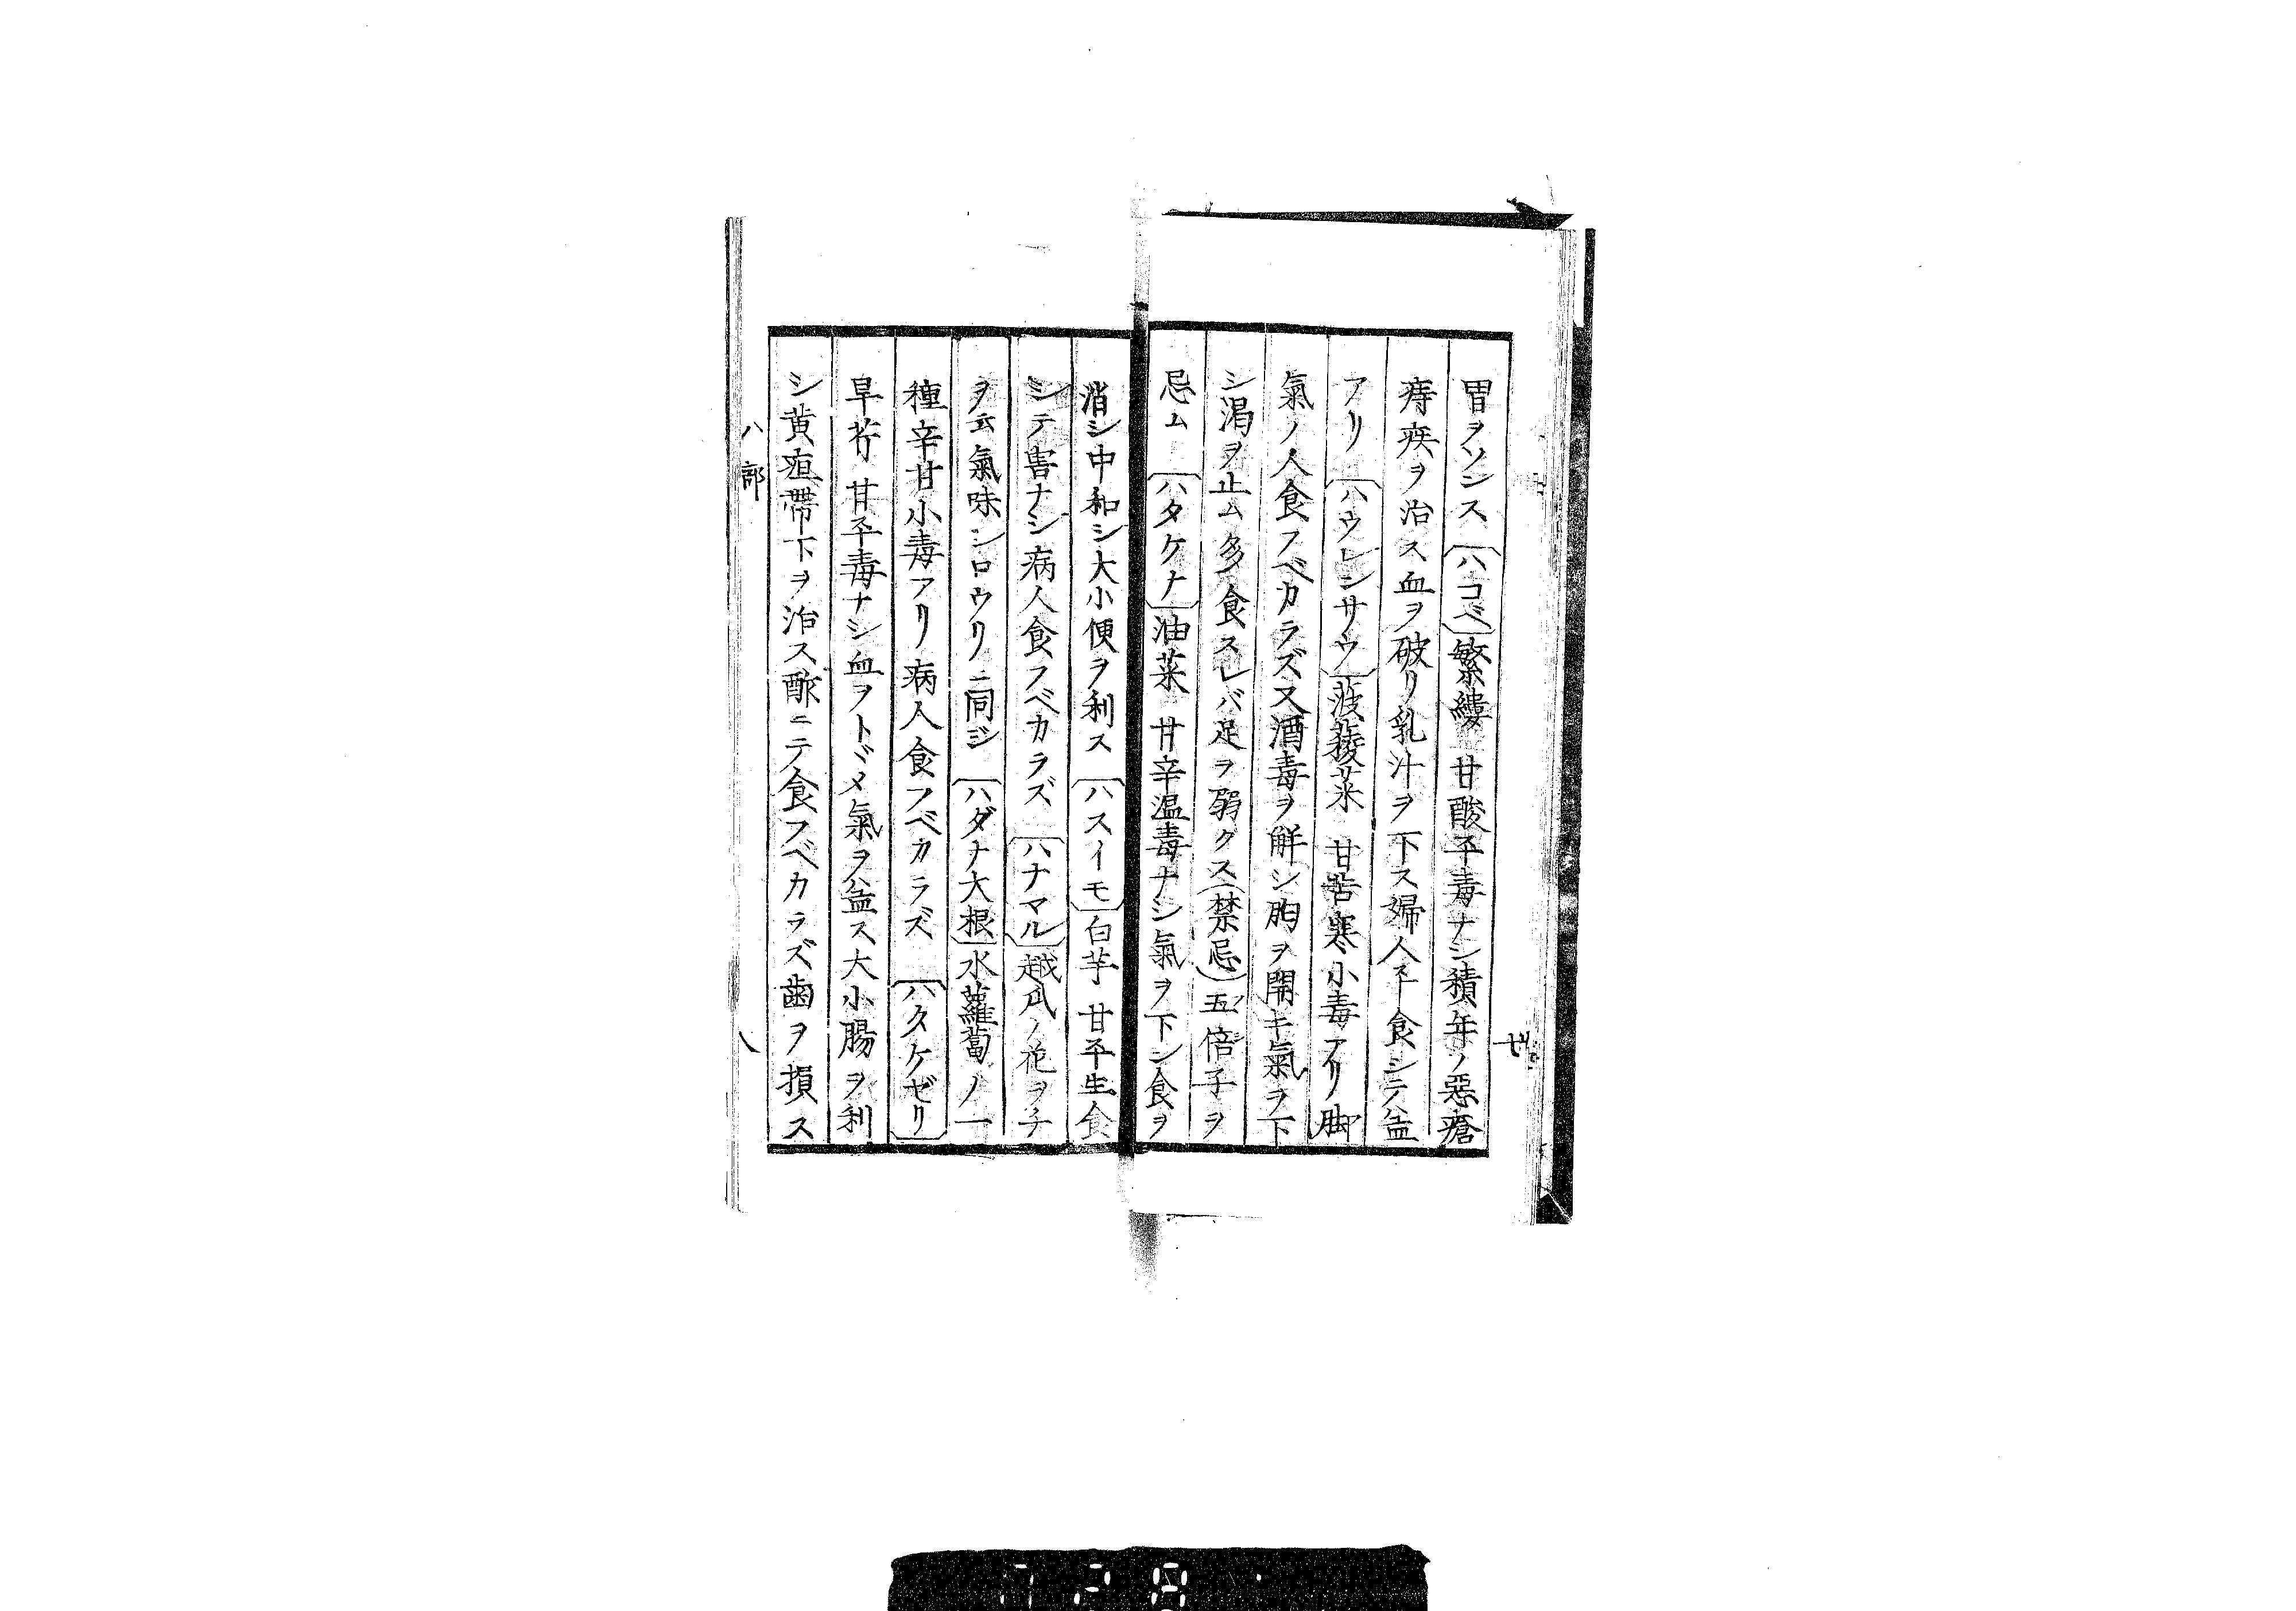 胃ヲソンス〔ハコベ〕繁縷 甘酸平毒ナシ積年ノ惡瘡
痔疾ヲ治ス血ヲ破リ乳汁ヲ下ス婦人不食シテ益
アリ〔ハウレンサウ〕菠薐菜 甘苦寒小毒アリ脚
氣ノ人食フベカラズ又酒毒ヲ解シ胸ヲ開キ氣ヲ下
シ渇ヲ止ム多食スレバ足ヲ弱クス(禁忌)五倍子ヲ
忌ム 〔ハタケナ〕油菜 甘辛温毒ナシ氣ヲ下シ食ヲ
消シ中和シ大小便ヲ利ス〔ハスイモ〕白芋 甘平生食
シテ害ナシ病人食フベカラズ〔ハナマル〕越瓜ノ花ヲチ
ヲ云氣味シロウリニ同ジ〔ハダナ大根〕水蘿蔔ノ一
種辛甘小毒アリ病人食フベカラズ 〔ハタケゼリ〕
旱芹 甘平毒ナシ血ヲトヾメ氣ヲ益ス大小腸ヲ利
シ黄疸帶下ヲ治ス酢ニテ食フベカラズ歯ヲ損ス
ハ部